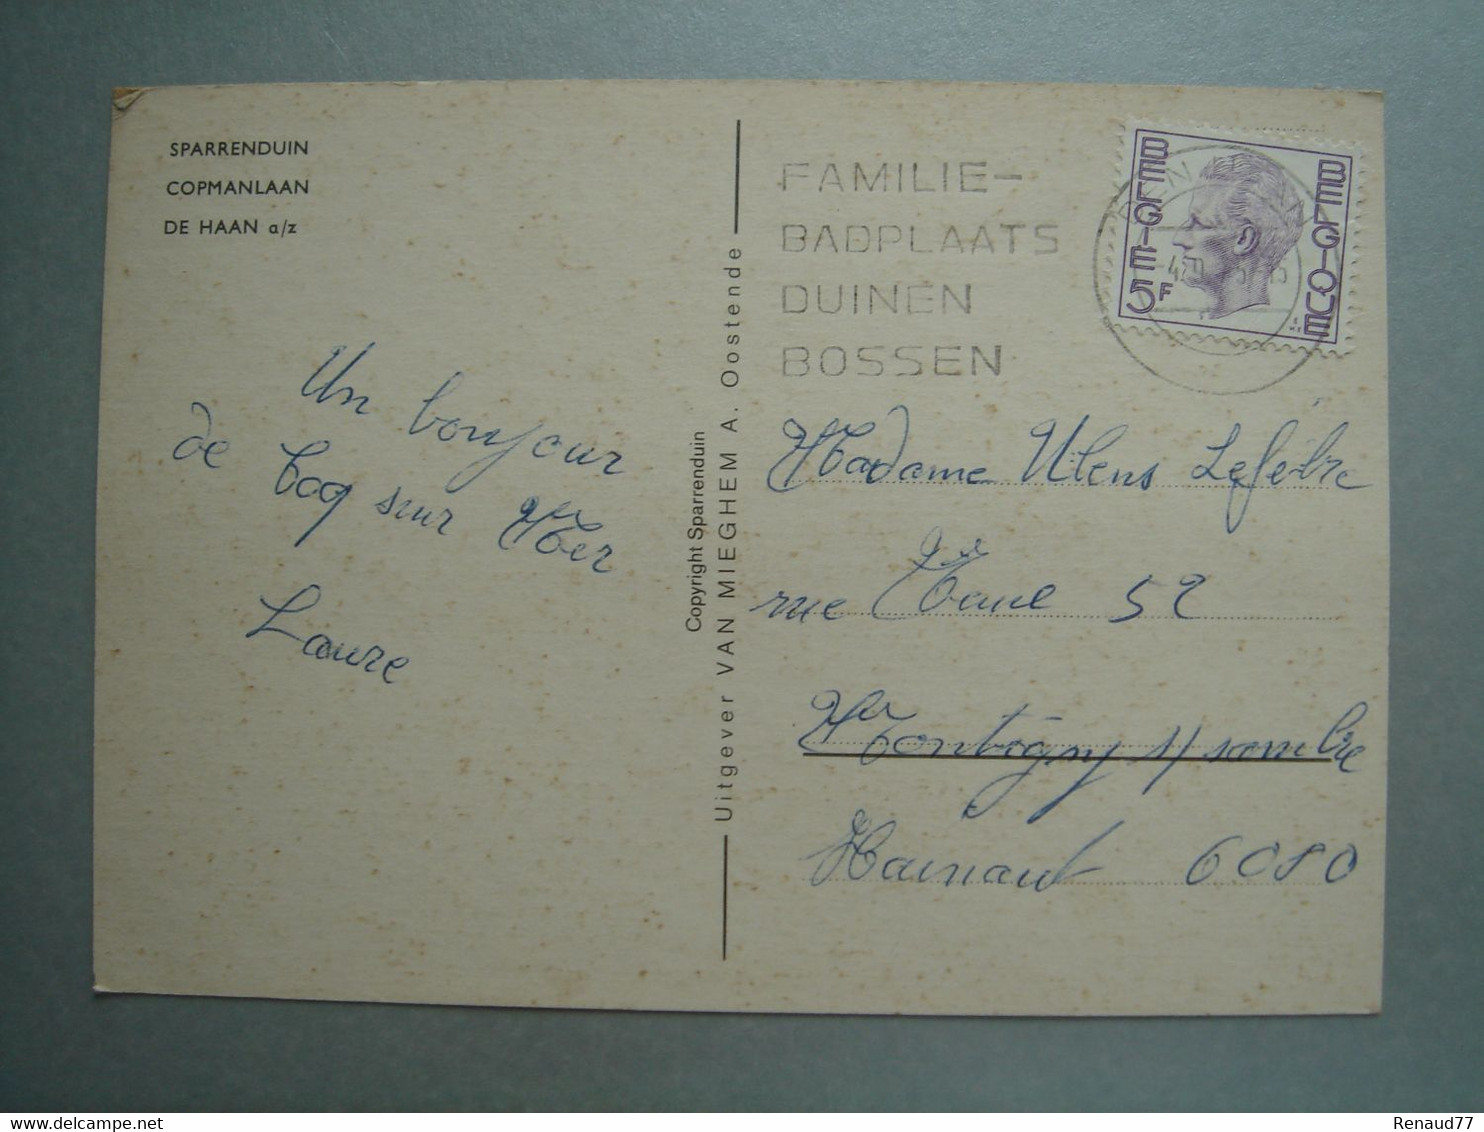 SPARRENDUIN
COPMANLAAN
DE HAAN a/z
Un bonjour
de Coq sur Mer
Laure
Copyright Sparrenduin
Uitgever VAN MIEGHEM A. Oostende
FAMILIE-
BADPLAATS
DUINEN
BOSSEN
BELGIE 5F
BELGIQUE
Madame Ulens Lefèbre
rue 52
Montigny s/ sambre
Hainaut 6080
Renaud77